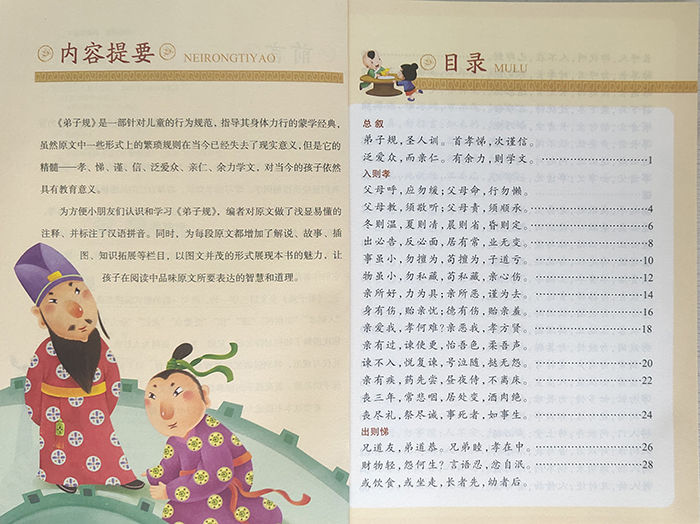 内容提要 NEIRONGTIYAO
《弟子规》是一部针对儿童的行为规范，指导其身体力行的蒙学经典，
虽然原文中一些形式上的繁琐规则在当今已经失去了现实意义，但是它的
精髓——孝、悌、谨、信、泛爱众、亲仁、余力学文，对当今的孩子依然
具有教育意义。
为方便小朋友们认识和学习《弟子规》，编者对原文做了浅显易懂的
注释、并标注了汉语拼音。同时，为每段原文都增加了解说、故事、插
图、知识拓展等栏目，以图文并茂的形式展现本书的魅力，让
孩子在阅读中品味原文所要表达的智慧和道理。
目录 MULU
总 叙
弟子规，圣人训。首孝悌，次谨信。
泛爱众，而亲仁。有余力，则学文。 1
入则孝
父母呼，应勿缓；父母命，行勿懒。
父母教，须敬听；父母责，须顺承。 4
冬则温，夏则凊，晨则省，昏则定。 6
出必告，反必面，居有常，业无变。 8
事虽小，勿擅为，苟擅为，子道亏。 10
物虽小，勿私藏，苟私藏，亲心伤。 12
亲所好，力为具；亲所恶，谨为去。 14
身有伤，贻亲忧；德有伤，贻亲羞。 16
亲爱我，孝何难？亲恶我，孝方贤。 18
亲有过，谏使更，怡吾色，柔吾声。
谏不入，悦复谏，号泣随，挞无怨。 20
亲有疾，药先尝，昼夜侍，不离床。 22
丧三年，常悲咽，居处变，酒肉绝。
丧尽礼，祭尽诚，事死者，如事生。 24
出则悌
兄道友，弟道恭。兄弟睦，孝在中。 26
财物轻，怨何生？言语忍，忿自泯。 28
或饮食，或坐走，长者先，幼者后。